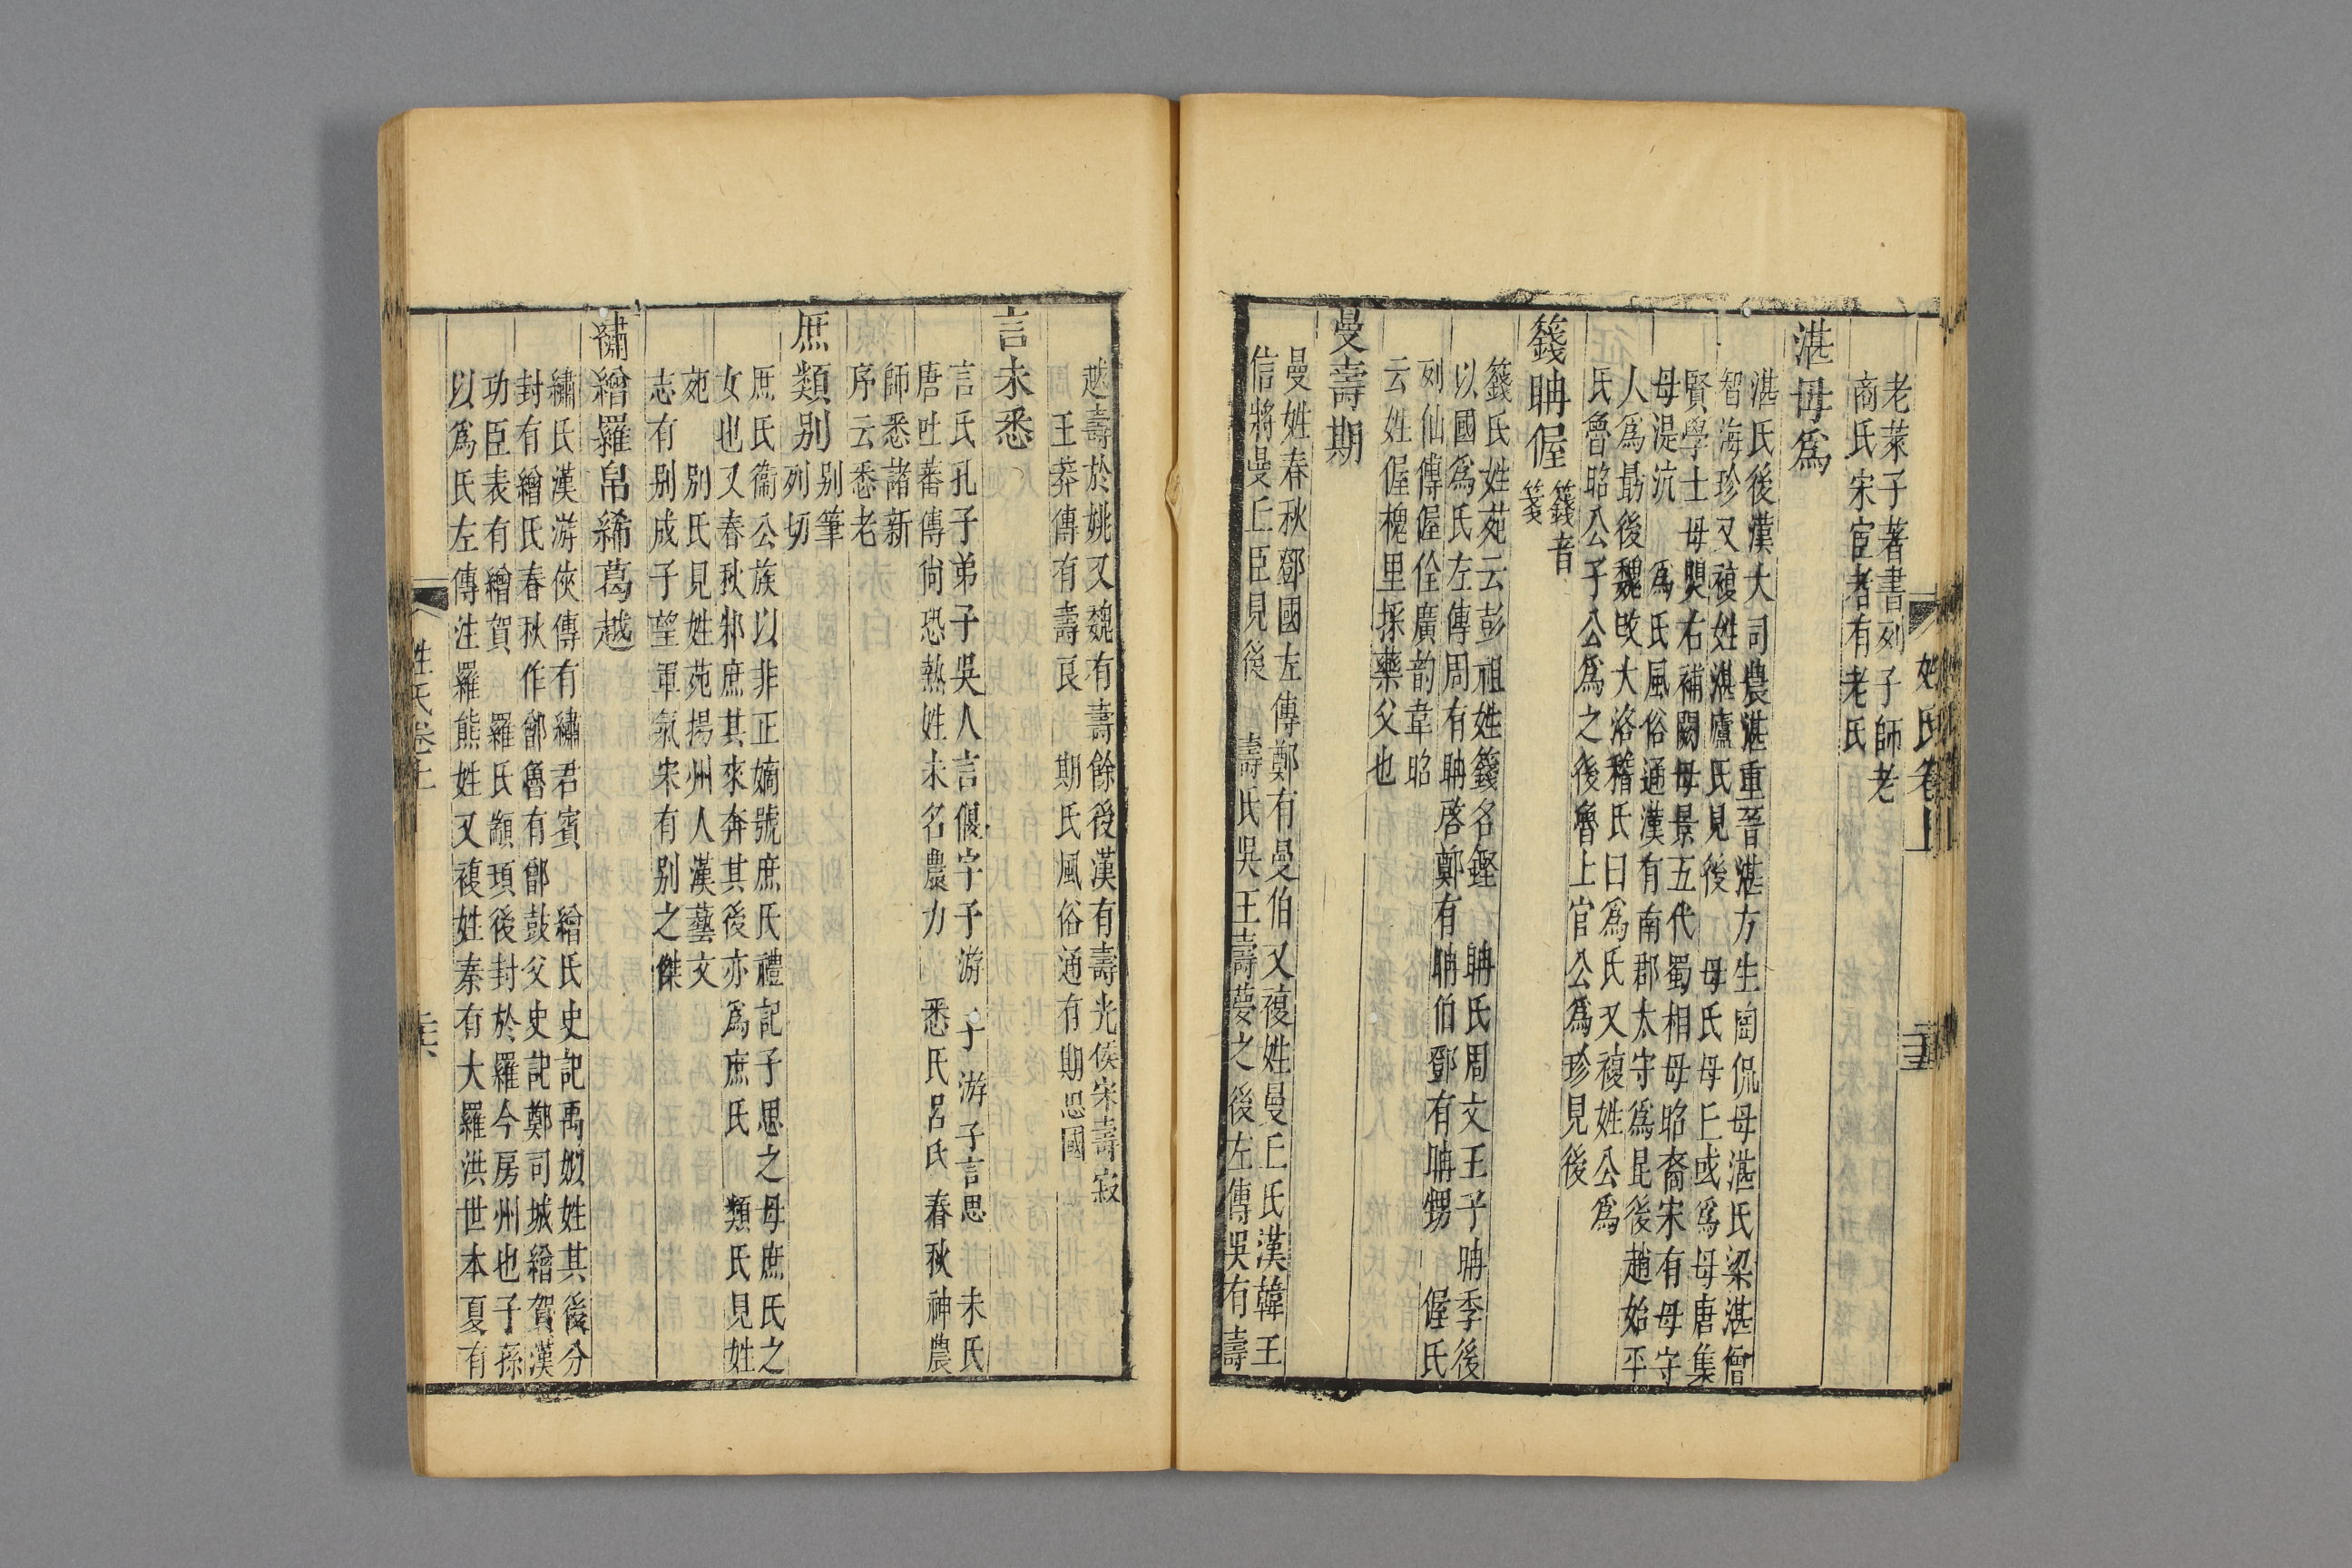 姓氏卷上
老萊子著書列子師老
商氏宋宦者有老氏
湛毋爲
湛氏後漢大司農湛重晉湛方生陶侃母湛氏梁湛僧
智海珍又複姓湛盧氏見後 毋氏毋丘或爲毋唐集
賢學士毋煚右補闕毋景五代蜀相毋昭裔宋有毋守
毋湜沆 爲氏風俗通漢有南郡太守爲昆後趙始平
人爲勗後魏改大洛稽氏曰爲氏又複姓公爲
氏魯昭公子公爲之後魯上官公爲珍見後
籛聃偓
籛音
箋
籛氏姓苑云彭祖姓籛名鏗 聃氏周文王子聃季後
以國爲氏左傳周有聃啓鄭有聃伯鄧有聃甥 偓氏
列仙傳偓佺廣韵韋昭
云姓偓槐里採藥父也
曼壽期
曼姓春秋鄧國左傳鄭有曼伯又複姓曼丘氏漢韓王
信將曼丘臣見後 壽氏吳王壽夢之後左傳吳有壽
越壽於姚又魏有壽餘後漢有壽光侯宋壽寂
王莽傳有壽良 期氏風俗通有期思國
言未悉
言氏孔子弟子吳人言偃字子游 子游子言思 未氏
唐吐蕃傳尚恐熱姓未名農力 悉氏呂氏春秋神農
師悉諸新
序云悉老
庶類別
別筆
列切
庶氏衞公族以非正嫡號庶氏禮記子思之母庶氏之
女也又春秋邾庶其來奔其後亦爲庶氏 類氏見姓
苑 別氏見姓苑揚州人漢藝文
志有別成子望軍氣宋有別之傑
繡繒羅帛絺葛越
繡氏漢游俠傳有繡君賓 繒氏史記禹姒姓其後分
封有繒氏春秋作鄫魯有鄫鼓父史記鄭司城繒賀漢
功臣表有繒賀 羅氏顓頊後封於羅今房州也子孫
以爲氏左傳注羅熊姓又複姓秦有大羅洪世本夏有
姓氏卷上